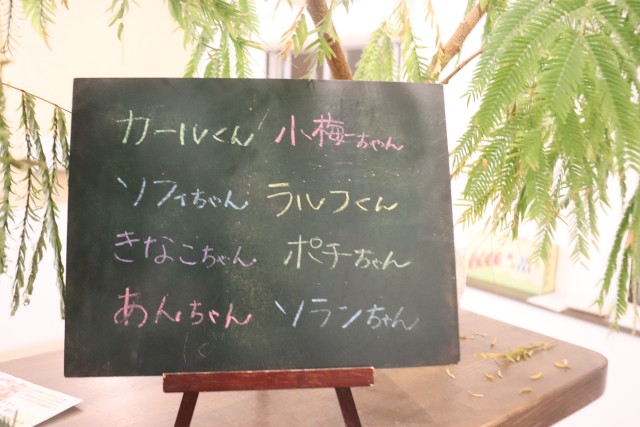 カールくん 小梅ちゃん
ソフィちゃん ラルフくん
きなこちゃん ポチちゃん
あんちゃん ソランちゃん